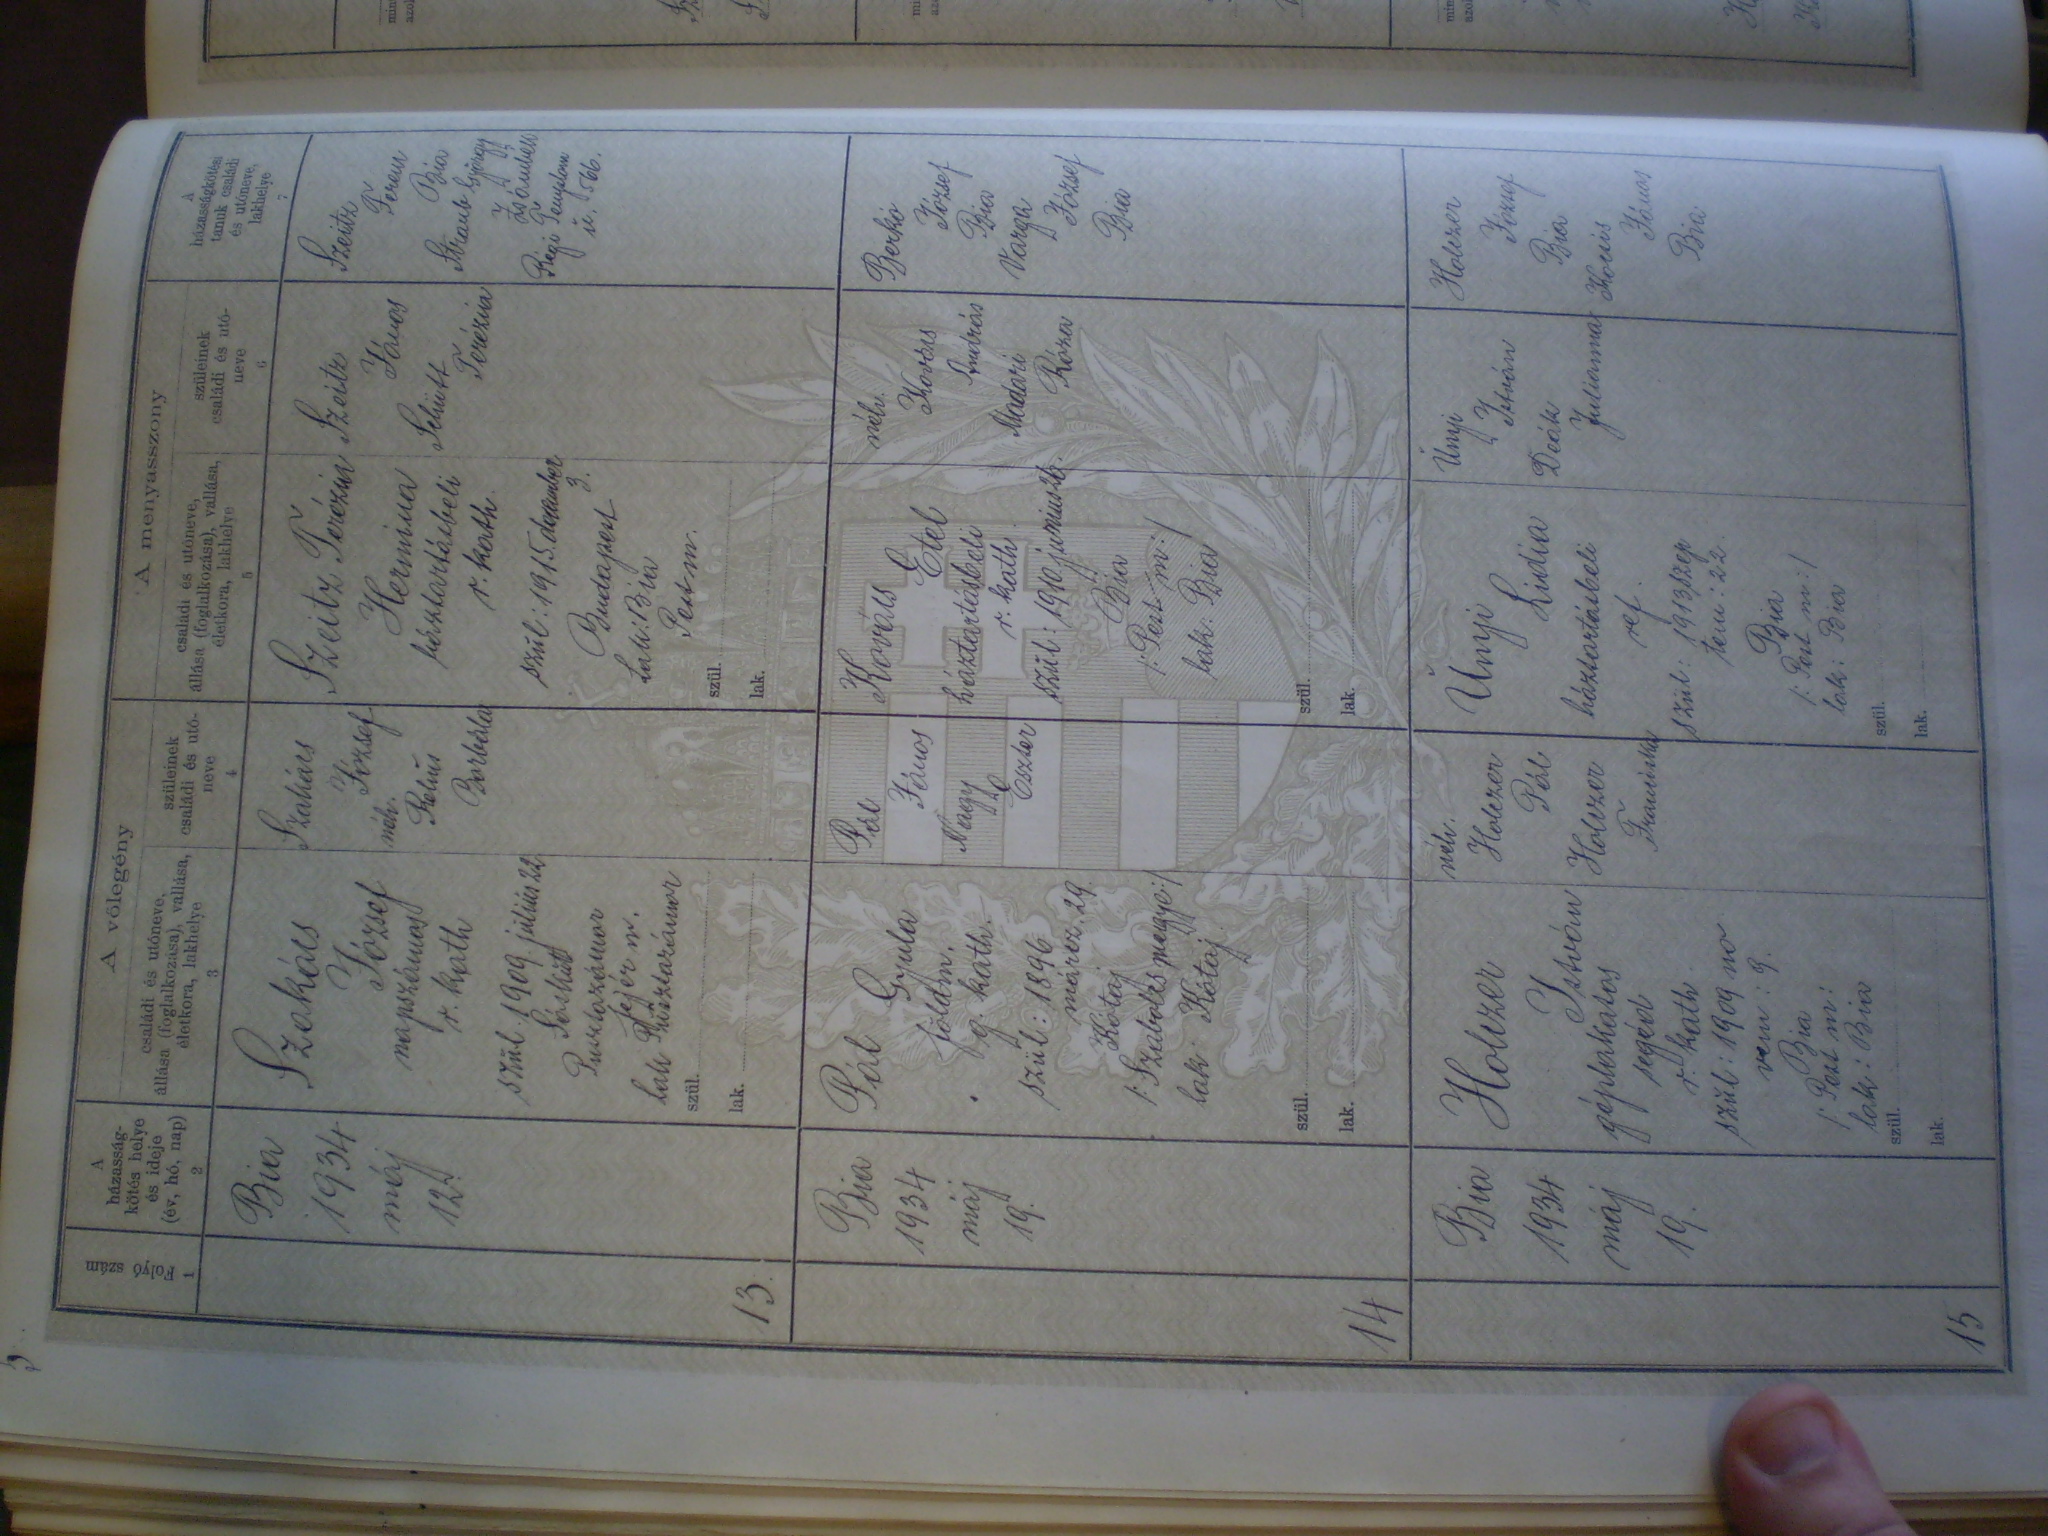 A
házasság-
kötés helye
és ideje
(év, hó, nap)
2
Folyó
szám
1
A vőlegény
családi és utóneve,
állása (foglalkozása), vallása,
életkora, lakhelye
3
szüleinek
családi és utó-
neve
4
A menyasszony
családi és utóneve,
állása (foglalkozása), vallása,
életkora, lakhelye
5
szüleinek
családi és utó-
neve
6
A
házasságkötési
tanuk családi
és utóneve,
lakhelye
7
13.
Bia
1934
máj
12.
Szakács
József
napszámos
r. kath
szül. 1909 július 22
Pusztazámor
Fejér m.
lak Pusztazámor
szül.
lak.
Szakács
József
néh.
Borbála
Szeitz Terézia
Hermina
háztartásbeli
r. kath.
szül: 1915. december
3.
Budapest
lak: Bia
Pest m.
szül.
lak.
Szeitz
János
Schütt
Terézia
Szeitz
Ferenc
Bia
Straub György
Zsámbék
Régi Templom
u. 566.
14
Bia
1934
máj
19.
Pál
Gyula
földm.
g. kath.
szül: 1896
márcz. 29.
Kótaj
/: Szabolcs megye :/
lak: Kótaj
szül.
lak.
Pál
János
Nagy
Eszter
Kovács
Etel
háztartásbeli
r. kath
szül: 1910 június
Bia
/: Pest m :/
lak: Bia
szül.
lak.
néh.
Kovács
András
Madari
Róza
Berkó
József
Bia
Varga
József
Bia
15
Bia
1934
máj
19.
Holczer
István
géplakatos
segéd
r. kath.
szül: 1909 no
vem: 9.
Bia
/: Pest m:
lak: Bia
szül.
lak.
néh.
Holczer
Pál
Holczer
Franciska
Únyi
Lidia
háztartásbeli
ref.
szül: 1913 szep
tem: 22.
Bia
/: Pest m: /
lak: Bia
szül.
lak.
Únyi
István
Deák
Julianna
Holczer
József
Bia
Kocsis
János
Bia